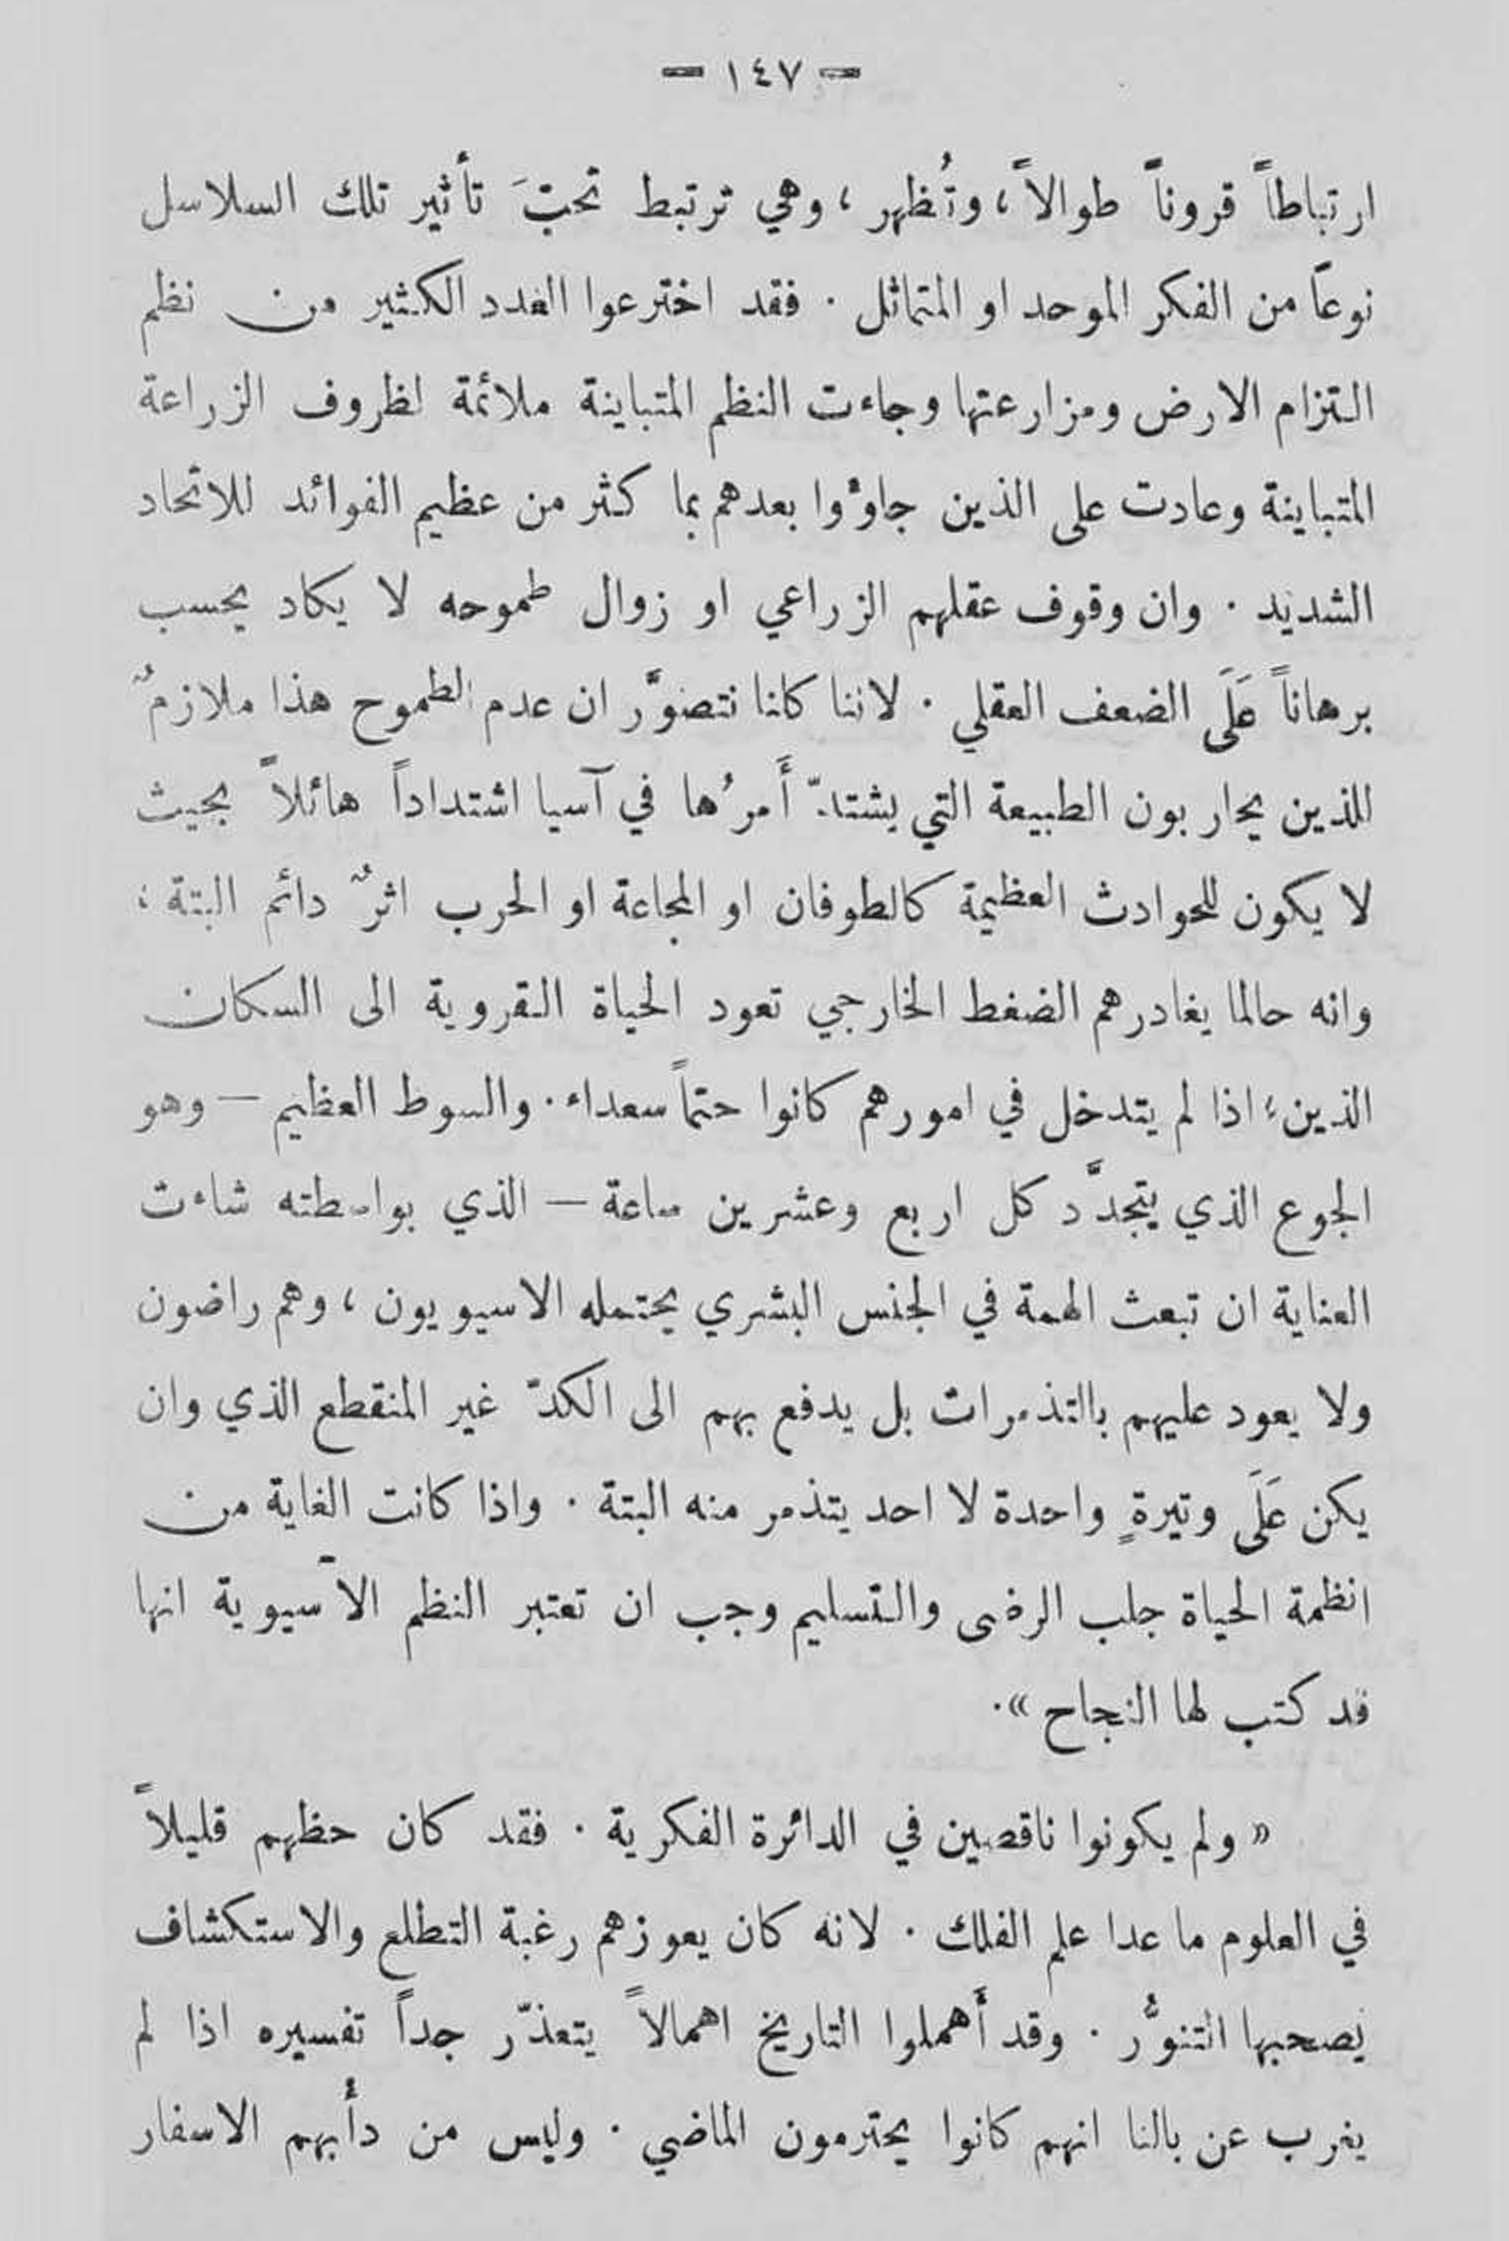 — ١٤٧ —
ارتباطاً قروناً طوالاً ، وتُظهر ، وهي ترتبط تحتَ تأثير تلك السلاسل
نوعاً من الفكر الموحد او المتماثل . فقد اخترعوا العدد الكثير من نظم
التزام الارض ومزارعتها وجاءت النظم المتباينة ملائمة لظروف الزراعة
المتباينة وعادت على الذين جاوُّا بعدهم بما كثر من عظيم الفوائد للاتحاد
الشديد . وان وقوف عقلهم الزراعي او زوال طموحه لا يكاد يحسب
برهاناً عَلَى الضعف العقلي . لاننا كانا نتصوَّر ان عدم الطموح هذا ملازمٌ
للذين يحاربون الطبيعة التي يشتدّ أَمرُها في آسيا اشتداداً هائلاً بحيث
لا يكون للحوادث العظيمة كالطوفان او المجاعة او الحرب اثرٌ دائم البتة ؛
وانه حالما يغادرهم الضغط الخارجي تعود الحياة القروية الى السكان
الذين ، اذا لم يتدخل في امورهم كانوا حتماً سعداء . والسوط العظيم — وهو
الجوع الذي يتجدَّد كل اربع وعشرين ساعة — الذي بواسطته شاءت
العناية ان تبعث الهمة في الجنس البشري يحتمله الاسيويون ، وهم راضون
ولا يعود عليهم بالتذمرات بل يدفع بهم الى الكدّ غير المنقطع الذي وان
يكن عَلَى وتيرةٍ واحدة لا احد يتذمر منه البتة . واذا كانت الغاية من
انظمة الحياة جلب الرضى والتسليم وجب ان تعتبر النظم الآسيوية انها
قد كتب لها النجاح » .
« ولم يكونوا ناقصين في الدائرة الفكرية . فقد كان حظهم قليلاً
في العلوم ما عدا علم الفلك . لانه كان يعوزهم رغبة التطلع والاستكشاف
يصحبها التنوُّر . وقد أَهملوا التاريخ اهمالاً يتعذّر جداً تفسيره اذا لم
يغرب عن بالنا انهم كانوا يحترمون الماضي . وليس من دأبهم الاسفار